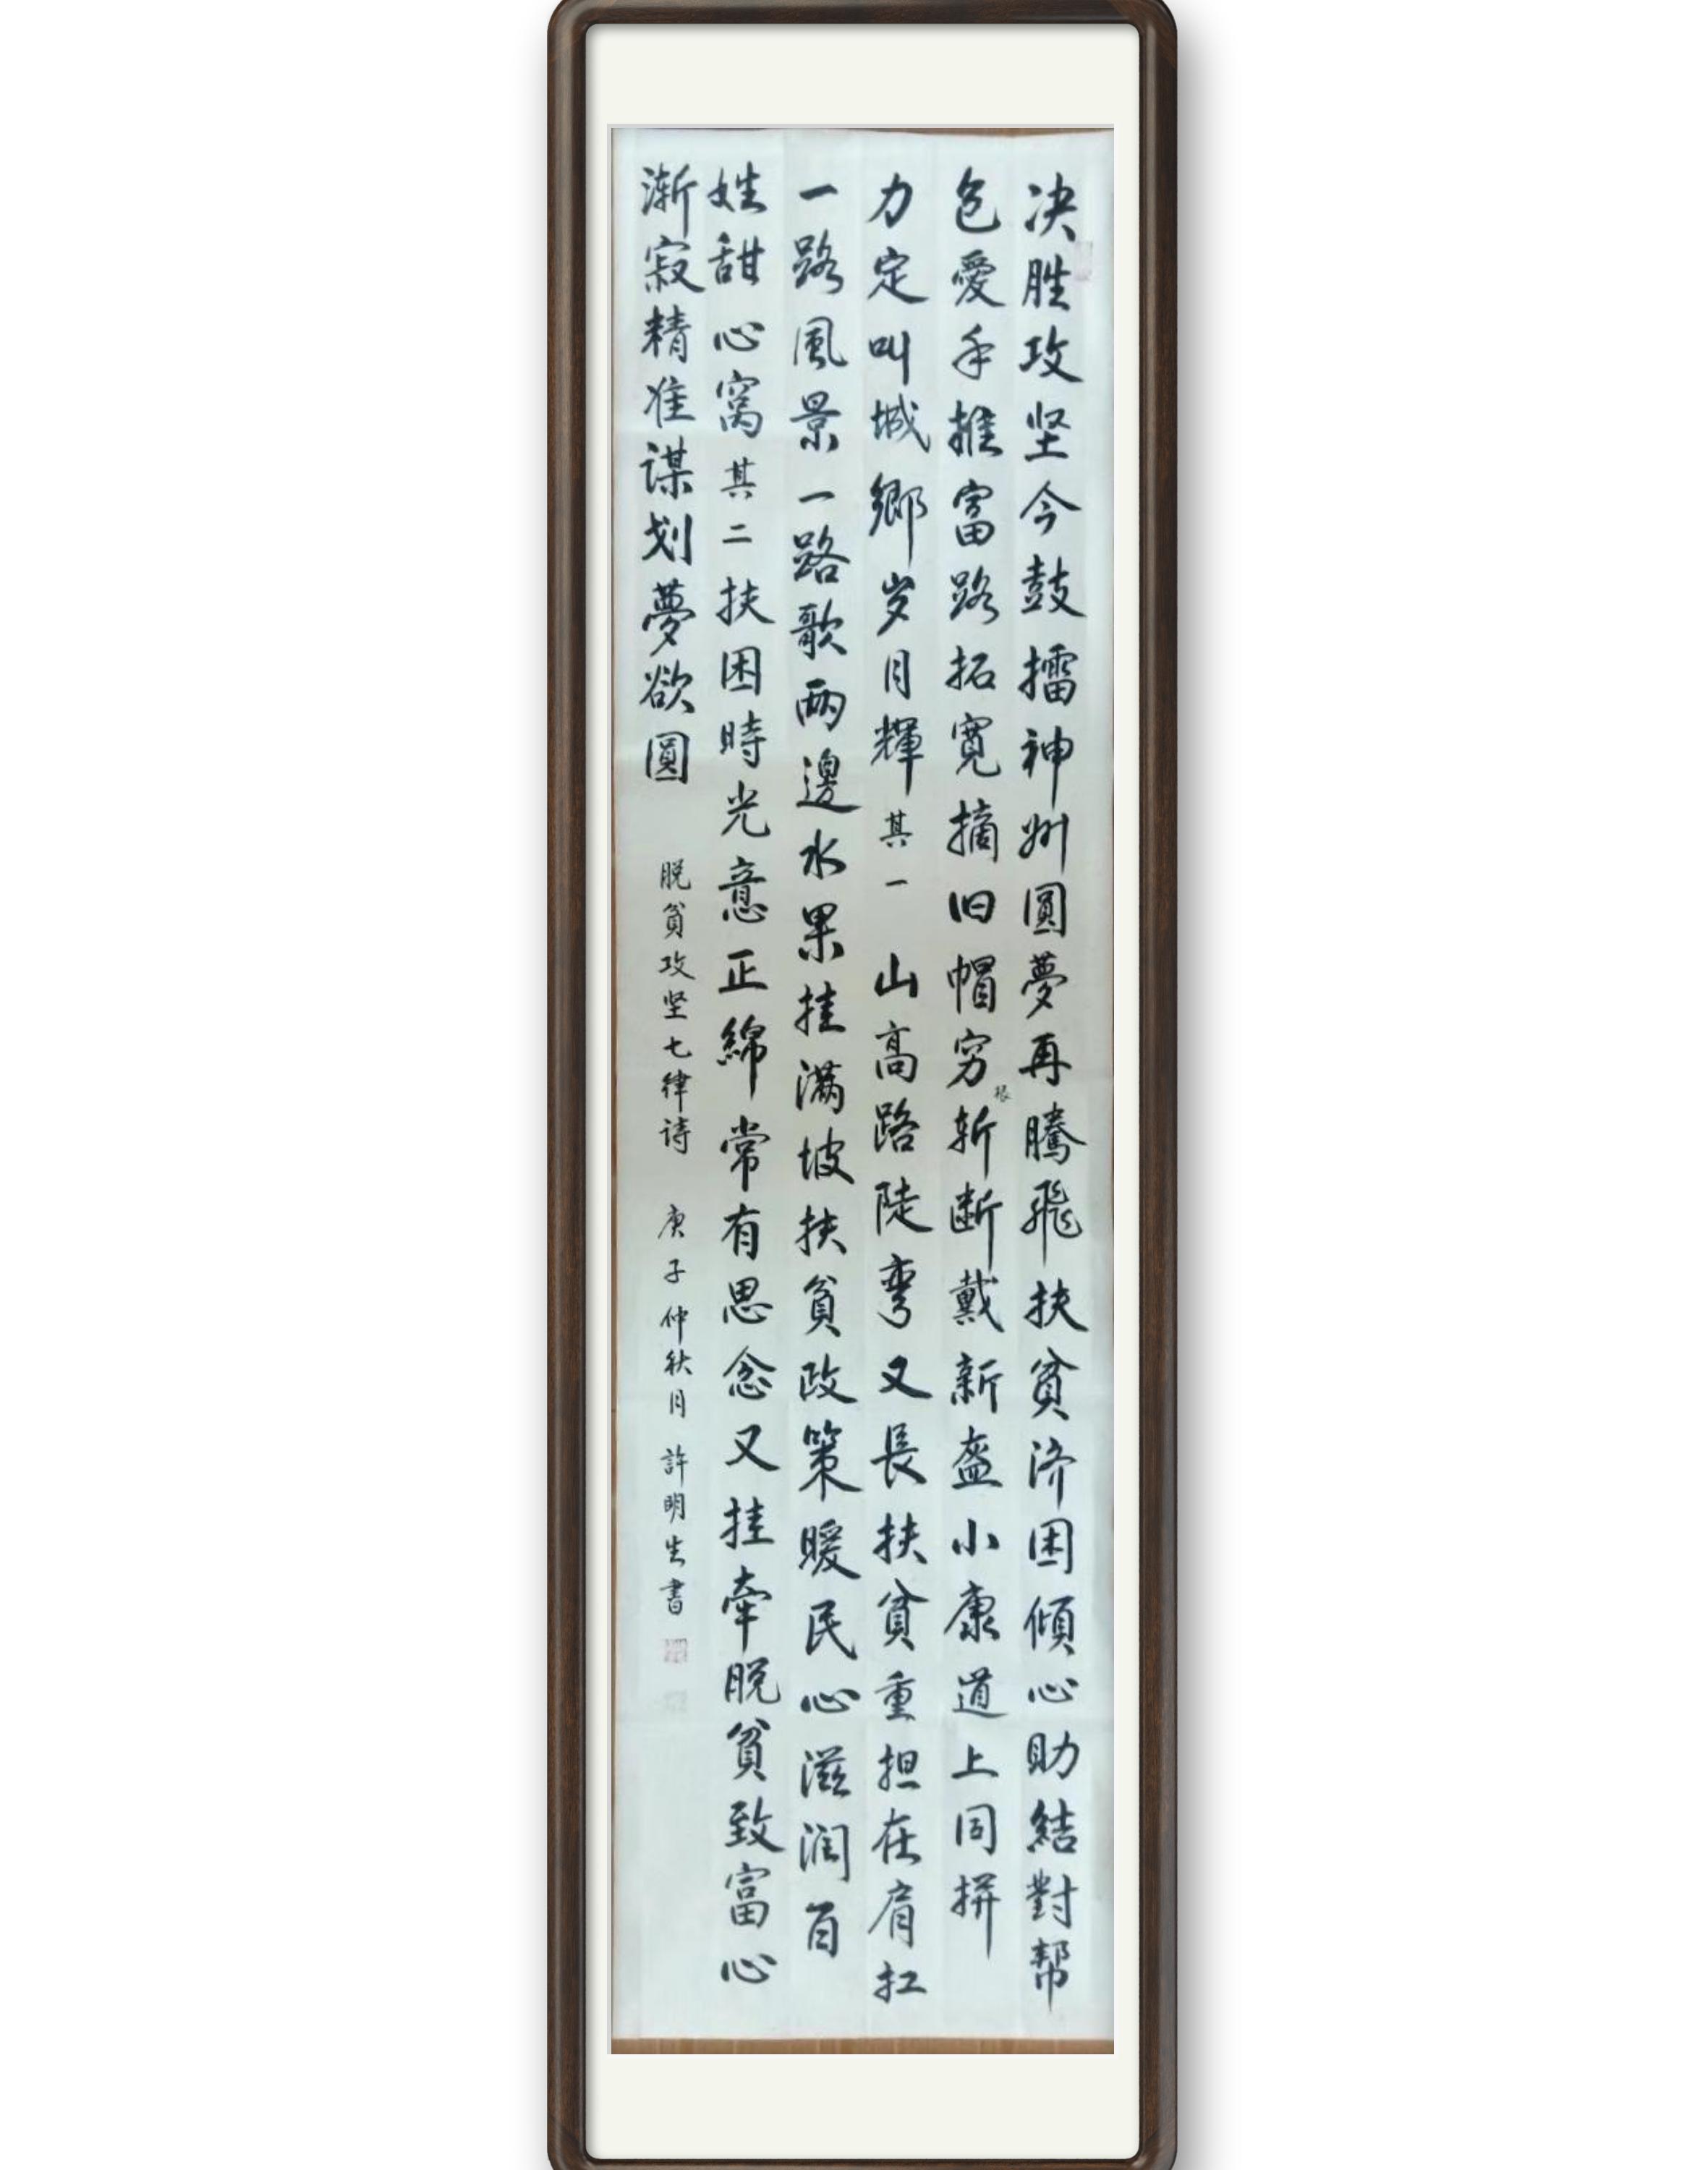 决胜攻坚今鼓擂神州圆夢再騰飛扶貧济困倾心助結對幇
包愛手推富路拓寬摘旧帽穷斩断戴新盔小康道上同拼
根
力定叫城鄉岁月輝其一山高路陡弯又長扶貧重担在肩扛
一路風景一路歌两邊水果挂满坡扶貧政策暖民心滋润百
姓甜心窝其二扶困時光意正綿常有思念又挂牵脱貧致富心
渐寂精准谋划夢欲圓
脱貧攻坚七律诗 庚子仲秋月 許明生書